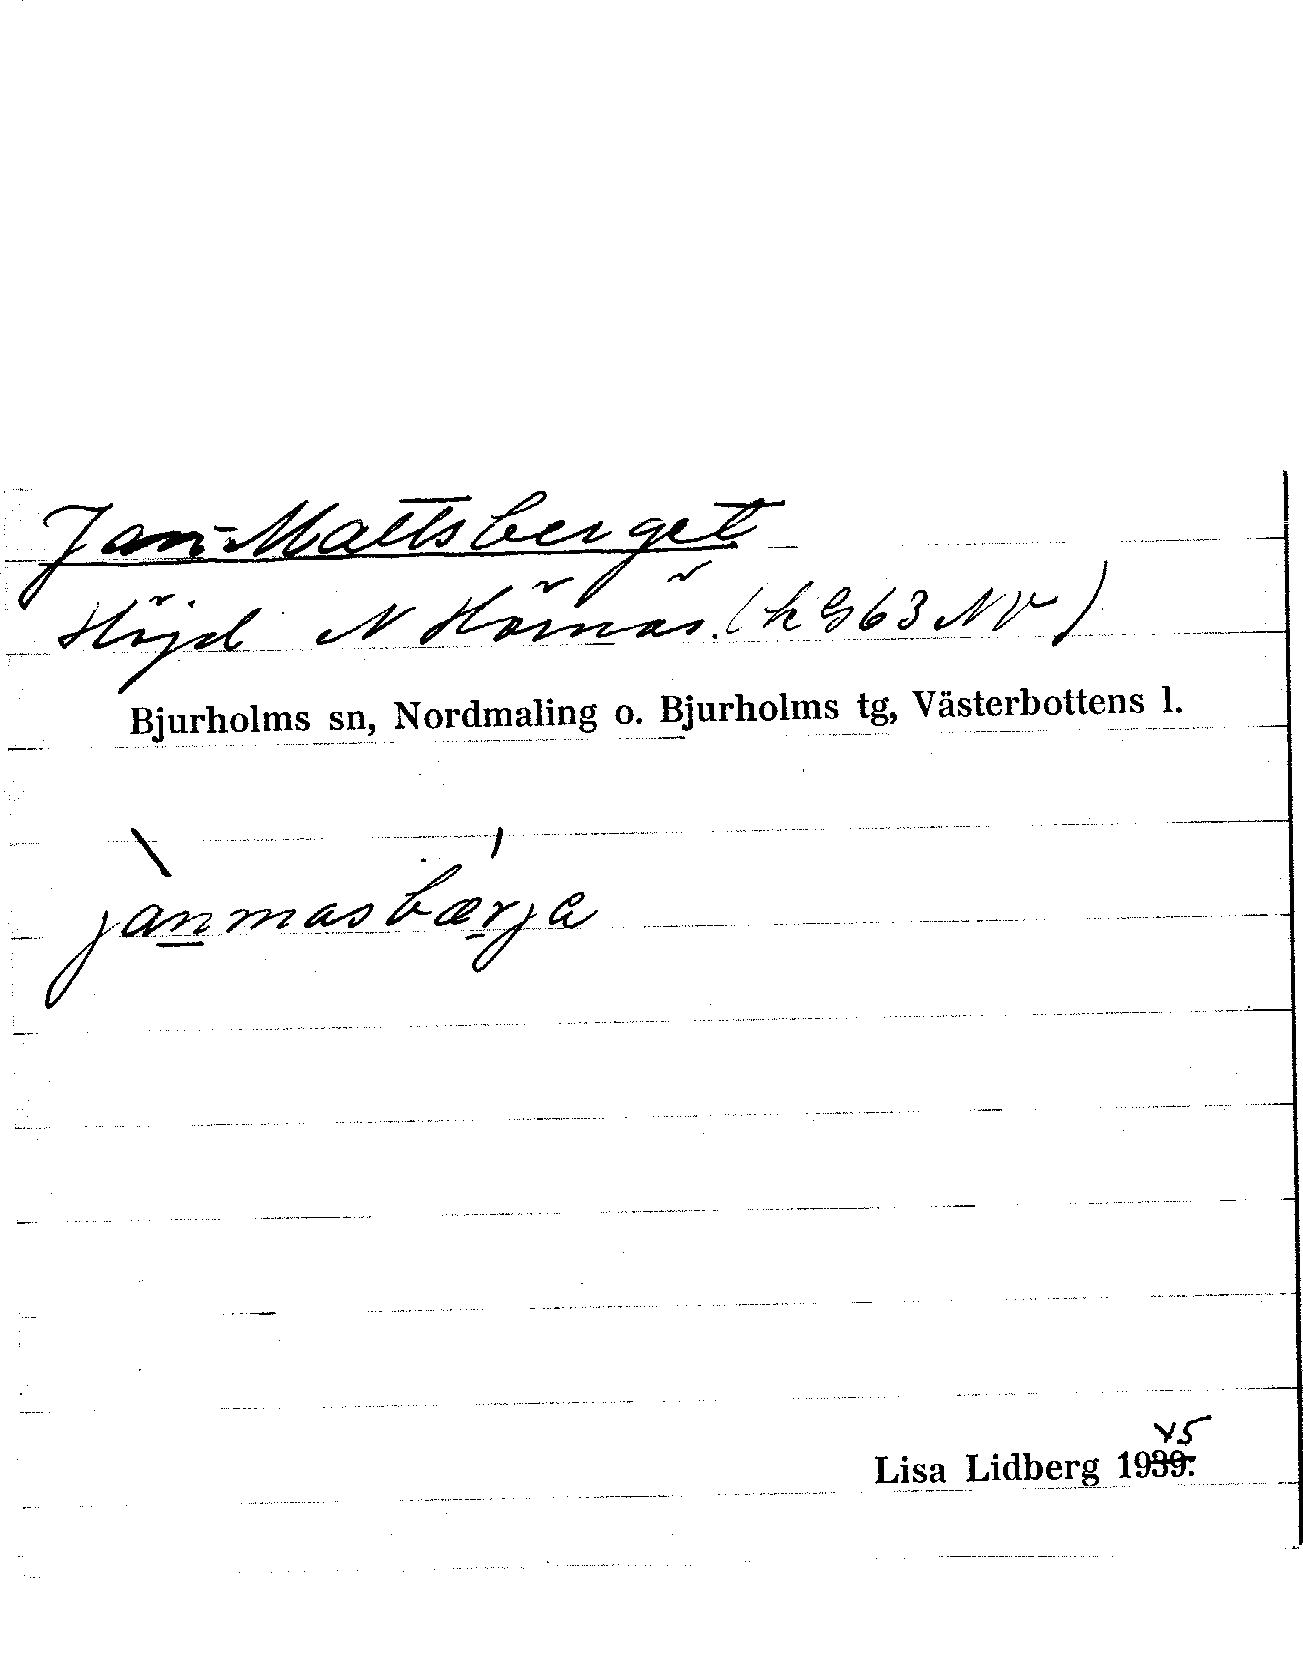 Jan-Mattsberget
Höjd N Hörnås. (k G63 NV)
Bjurholms sn, Nordmaling o. Bjurholms tg, Västerbottens l.
jànmasbǽrja
45
Lisa Lidberg 1939.